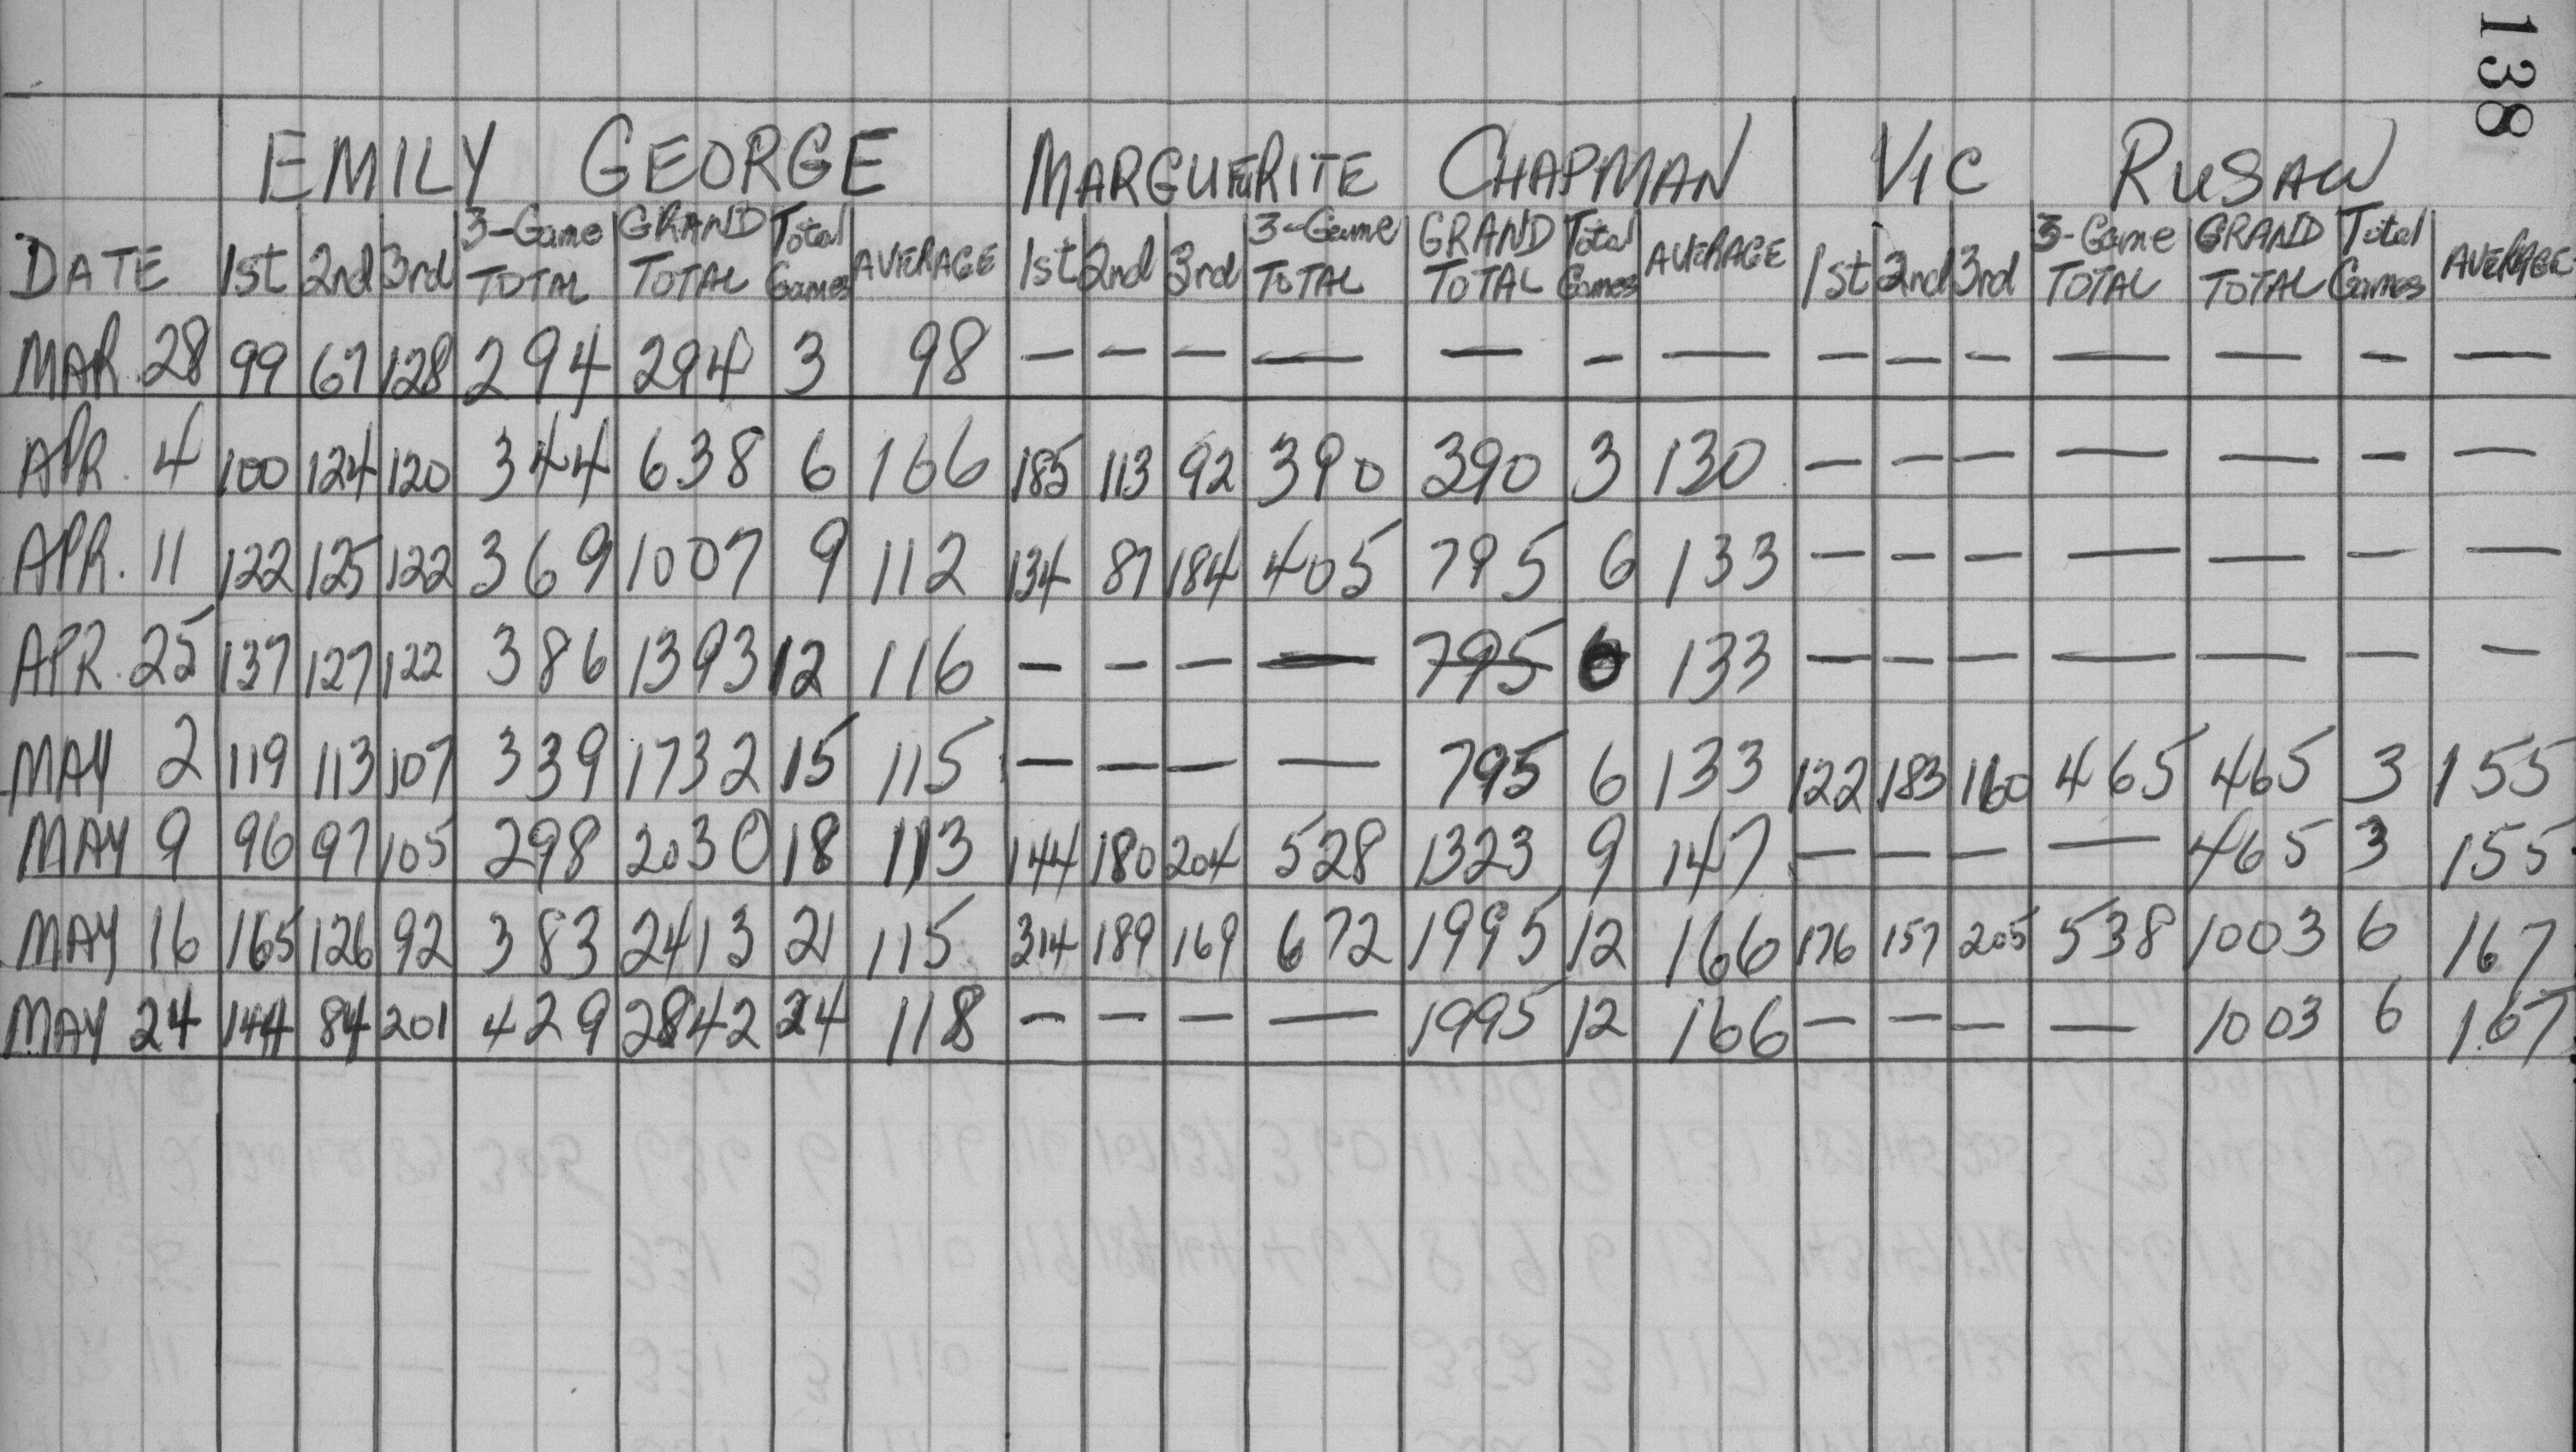 138
EMILY GEORGE MARGUERITE CHAPMAN VIC RUSAW
DATE 1st 2nd 3rd 3-Game TOTAL GRAND TOTAL Total Games AVERAGE 1st 2nd 3rd 3-Game TOTAL GRAND TOTAL Total Games AVERAGE 1st 2nd 3rd 3-Game TOTAL GRAND TOTAL Total Games AVERAGE
MAR. 28 99 67 128 294 294 3 98 — — — — — — — — — — — — — —
APR. 4 100 124 120 344 638 6 106 185 113 92 390 390 3 130 — — — — — — —
APR. 11 122 125 122 369 1007 9 112 134 87 184 405 795 6 133 — — — — — — —
APR. 25 137 127 122 386 1393 12 116 — — — — 795 6 133 — — — — — — —
MAY 2 119 113 107 339 1732 15 115 — — — — 795 6 133 122 183 160 465 465 3 155
MAY 9 96 97 105 298 2030 18 113 144 180 204 528 1323 9 147 — — — — 465 3 155
MAY 16 165 126 92 383 2413 21 115 314 189 169 672 1995 12 166 176 157 205 538 1003 6 167
MAY 24 144 84 201 429 2842 24 118 — — — — 1995 12 166 — — — — 1003 6 167